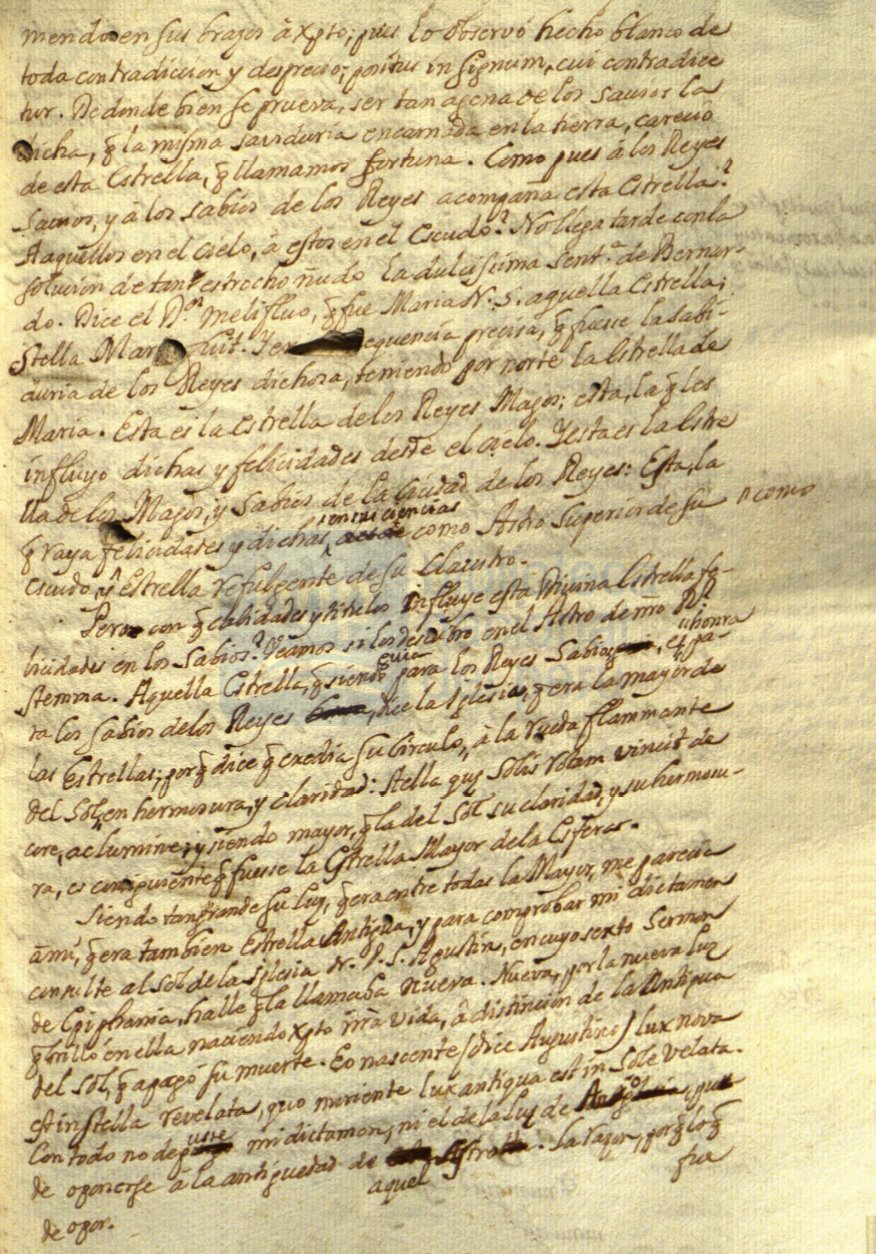 niendo en sus brazos à Xpto; pues lo observó hecho blanco de
toda contradiccion y desprecio; positus in signum, cui contradice
tur. De donde bien se prueva, ser tan agena de los savios la
dicha, q̃ la misma saviduria encarnada en la tierra, careciò
de esta Estrella, q̃ llamamos fortuna. Como pues à los Reyes
savios, y à los sabios de los Reyes acompaña esta Estrella?
A aquellos en el cielo, à estos en el Escudo? No llega tarde con la
solucion de tan estrecho ñudo la dulcissima Sent.ª de Bernar-
do. Dice el D.ᵒʳ melifluo, q̃ fue Maria N. S. aquella Estrella;
Stella Mar fuit. Y equencia precisa, q̃ fuesse la sabi-
duria de los Reyes dichosa, teniendo por norte la Estrella de
Maria. Esta es la Estrella de los Reyes Magos; esta, la q̃ les
influyo dichas y felicidades desde el cielo. Y esta es la Estre
lla de los Magos, y Sabios de la Ciudad de los Reyes: Esta, la
q̃ raya felicidades y dichas en sus ciencias como Astro Superior de su " como
escudo, y Estrella refulgente de su Claustro.
Pero con q̃ calidades y titulos influye esta Divina Estrella fe-
licidades en los Sabios? Veamos si los descubro en el Astro de nr̃o R.ˡ
stemma. Aquella Estrella, q̃ siendo guia para los Reyes Sabios, es honra pa-
ra los sabios de los Reyes, dice la Iglesia, q̃ era la mayor de
las Estrellas; porq̃ dice q̃ excedia su circulo, à la rueda flammante
del Sol, en hermosura, y claridad: Stella quę Solis rotam vincit de
core, ac lumine; y siendo mayor, q̃ la del Sol su claridad, y su hermosu-
ra, es consiguiente q̃ fuesse la Estrella Mayor de la Esferas.
Siendo tan grande su luz, q̃ era entre todas la Mayor, me parecia
à mi, q̃ era tambien Estrella Antigua, y para comprobar mi dictamen
consulte al Sol de la Iglesia N. P. S. Agustin, en cuyo sexto Sermon
de Epiphania, halle q̃ la llamaba nueva. Nueva, por la nueva luz
q̃ brillò en ella naciendo Xpto nr̃a vida, à distincion de la Antigua
del Sol, q̃ apagò su muerte. Eo nascente (dice Augustino) lux nova
est in stella revelata, quo moriente lux antiqua est in Sole velata.
Con todo no depuse mi dictamen, ni el de la luz de pue
de oponerse à la antiguedad de aquel Astro. La razon, porq̃ lo q̃
fue
de opor.